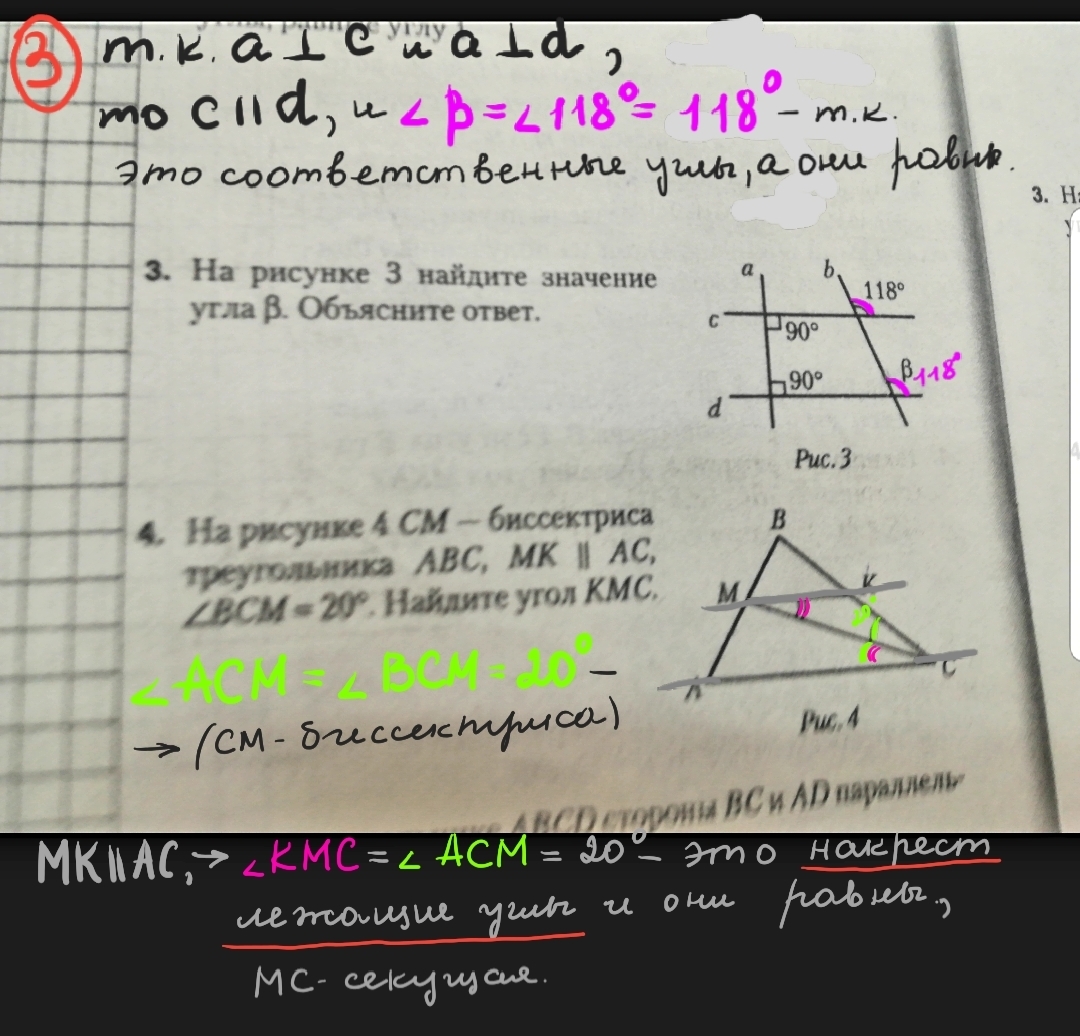 3 т.к. a ⊥ c и a ⊥ d,
то c || d, и ∠β = ∠118° = 118° – т.к.
это соответственные углы, а они равны.
3. На рисунке 3 найдите значение
угла β. Объясните ответ.
a b 118°
c 90°
90° β 118°
d
Рис. 3
3. На
4. На рисунке 4 CM – биссектриса
треугольника ABC, MK || AC,
∠BCM = 20°. Найдите угол KMC.
B
M K
20°
A C
Рис. 4
∠ACM = ∠BCM = 20° –
→ (CM - биссектриса)
ABCD стороны BC и AD параллель-
MK || AC, → ∠KMC = ∠ACM = 20° – это накрест
лежащие углы и они равны,
MC - секущая.